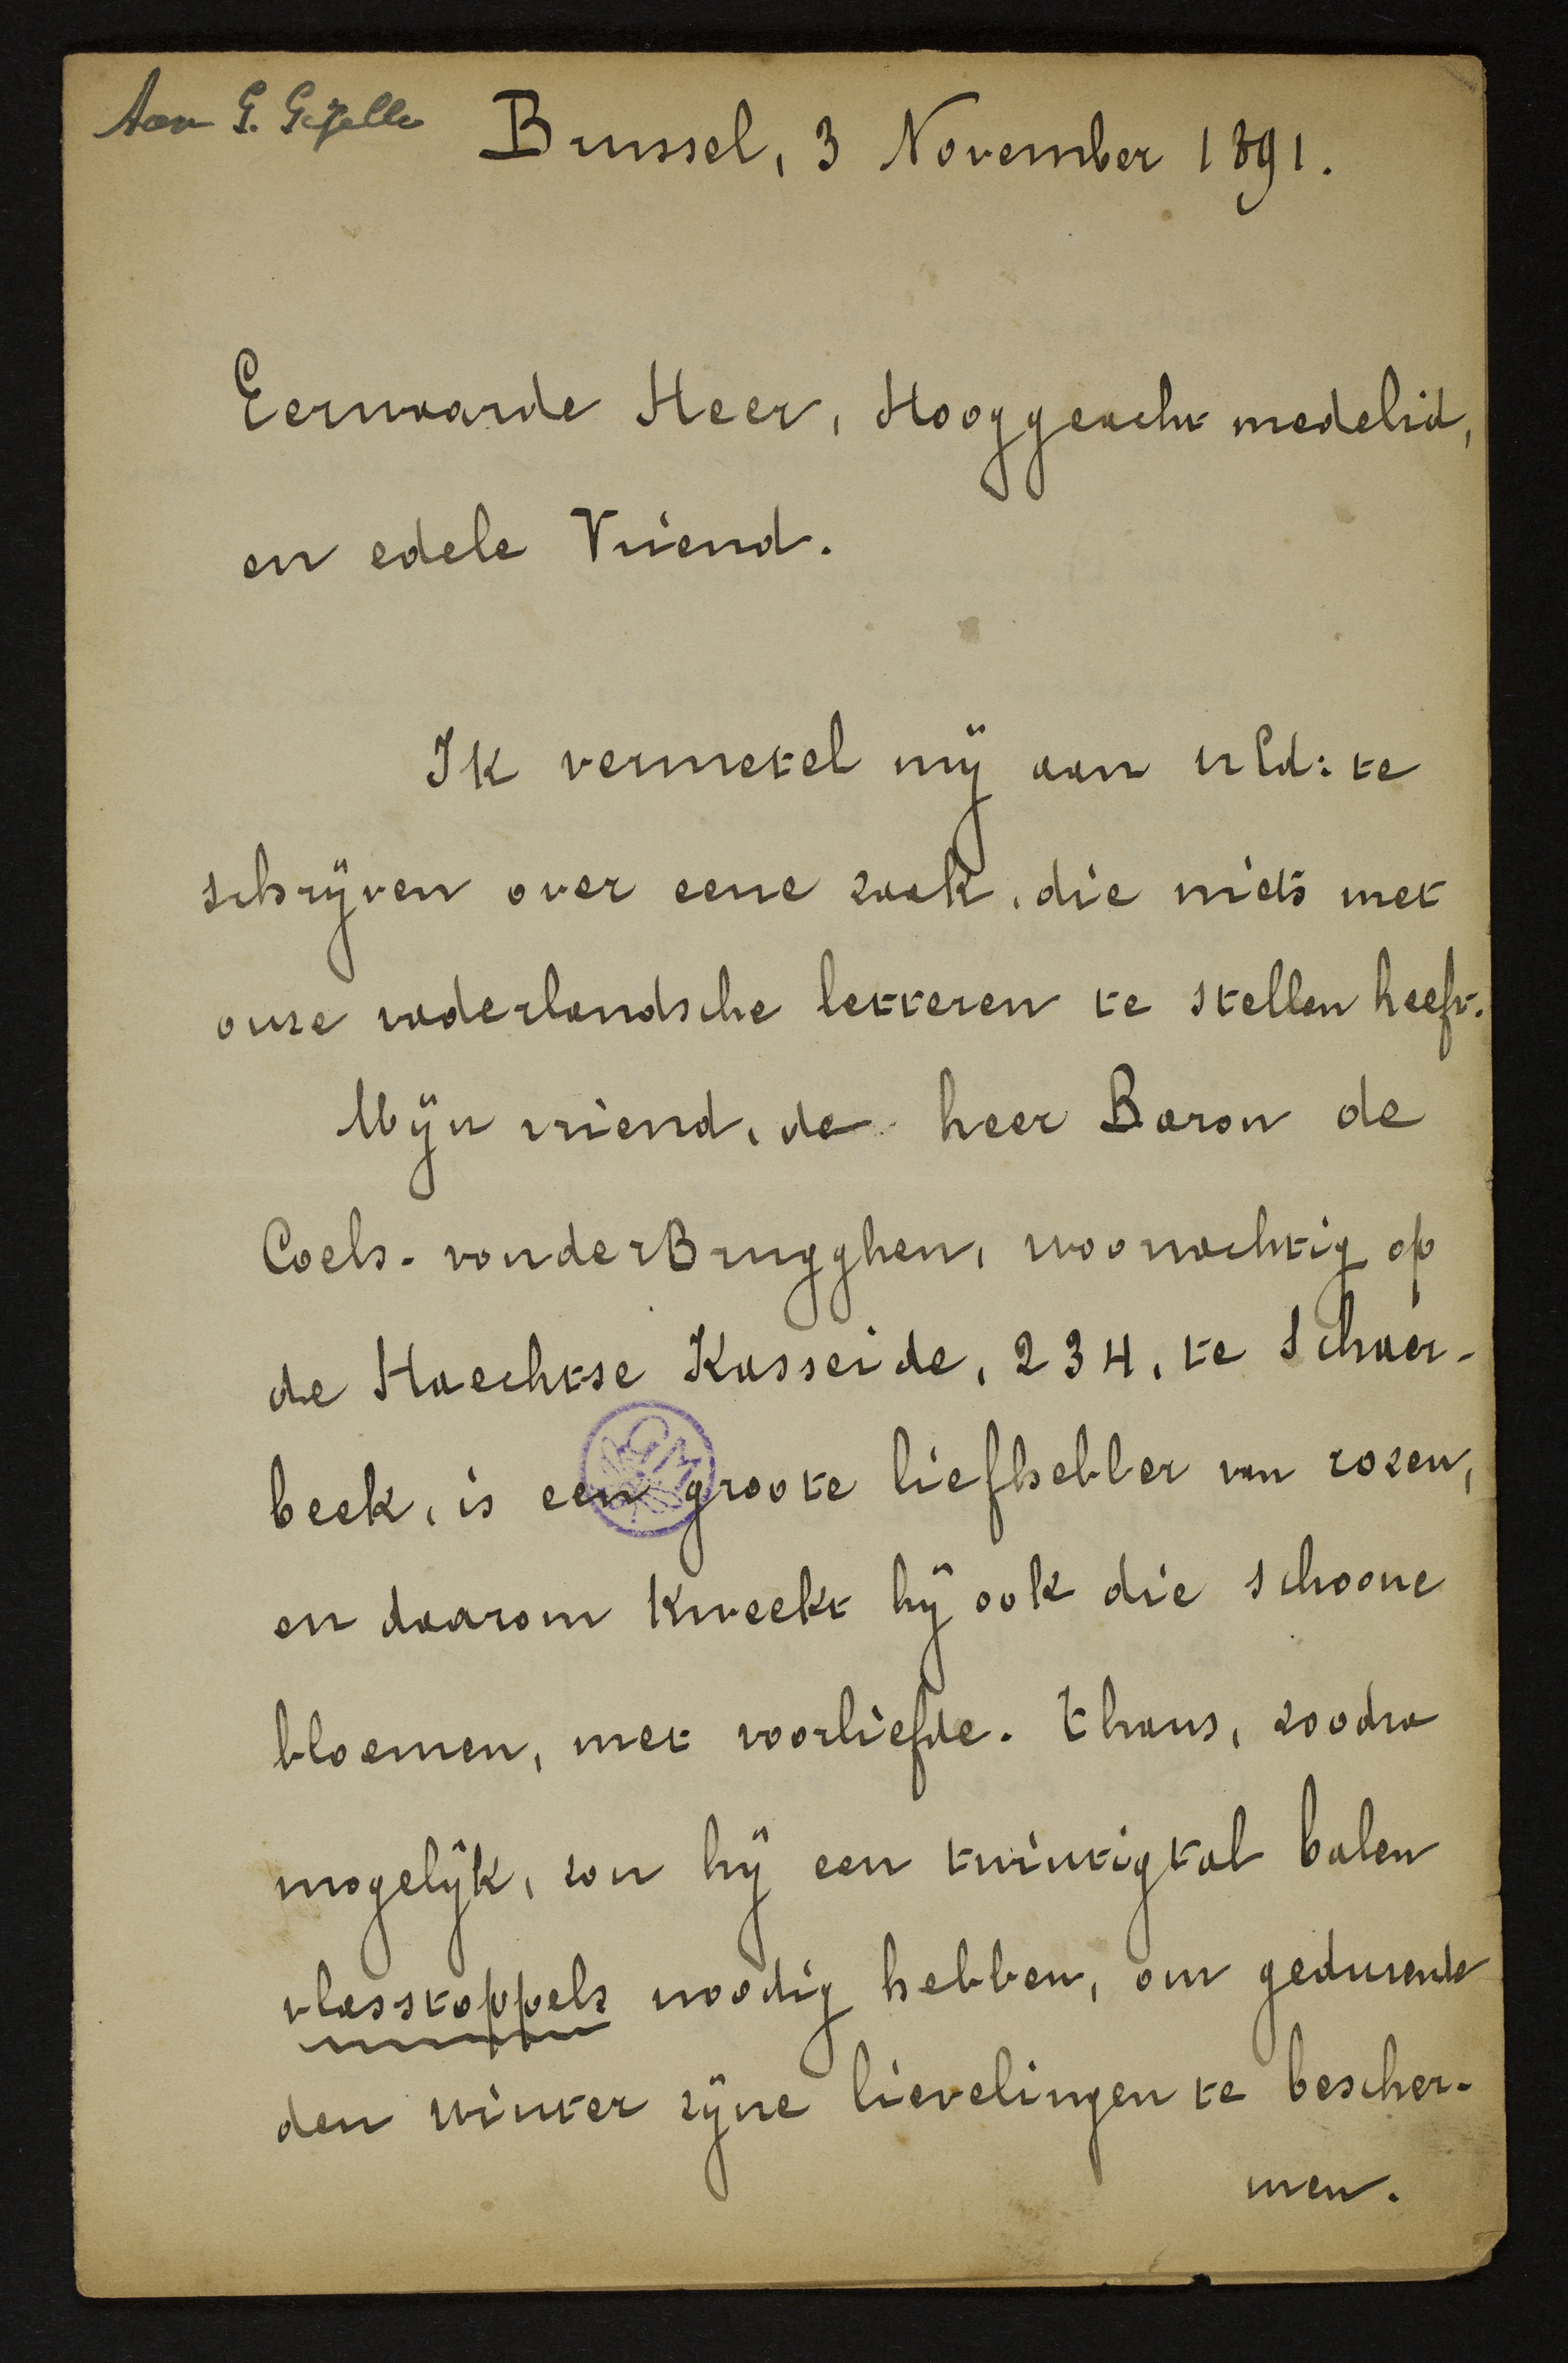 Aan G. Gezelle
Brussel, 3 November 1891.
Eerwaarde Heer, Hooggeacht medelid,
en edele Vriend.
Ik vermetel mÿ aan UEd: te
schrÿven over eene zaak, die niets met
onze vaderlandsche letteren te stellen heeft.
Mÿn vriend, de heer Baron de
Coels-vanderBrugghen, woonachtig op
de Haechtse Kasseide, 234, te Schaer-
beek, is een groote liefhebber van rozen,
en daarom kweekt hÿ ook die schoone
bloemen, met voorliefde. Thans, zoodra
mogelÿk, zou hÿ een twintigtal balen
vlasstoppels noodig hebben, om gedurende
den winter zÿne lievelingen te bescher-
men.
GM